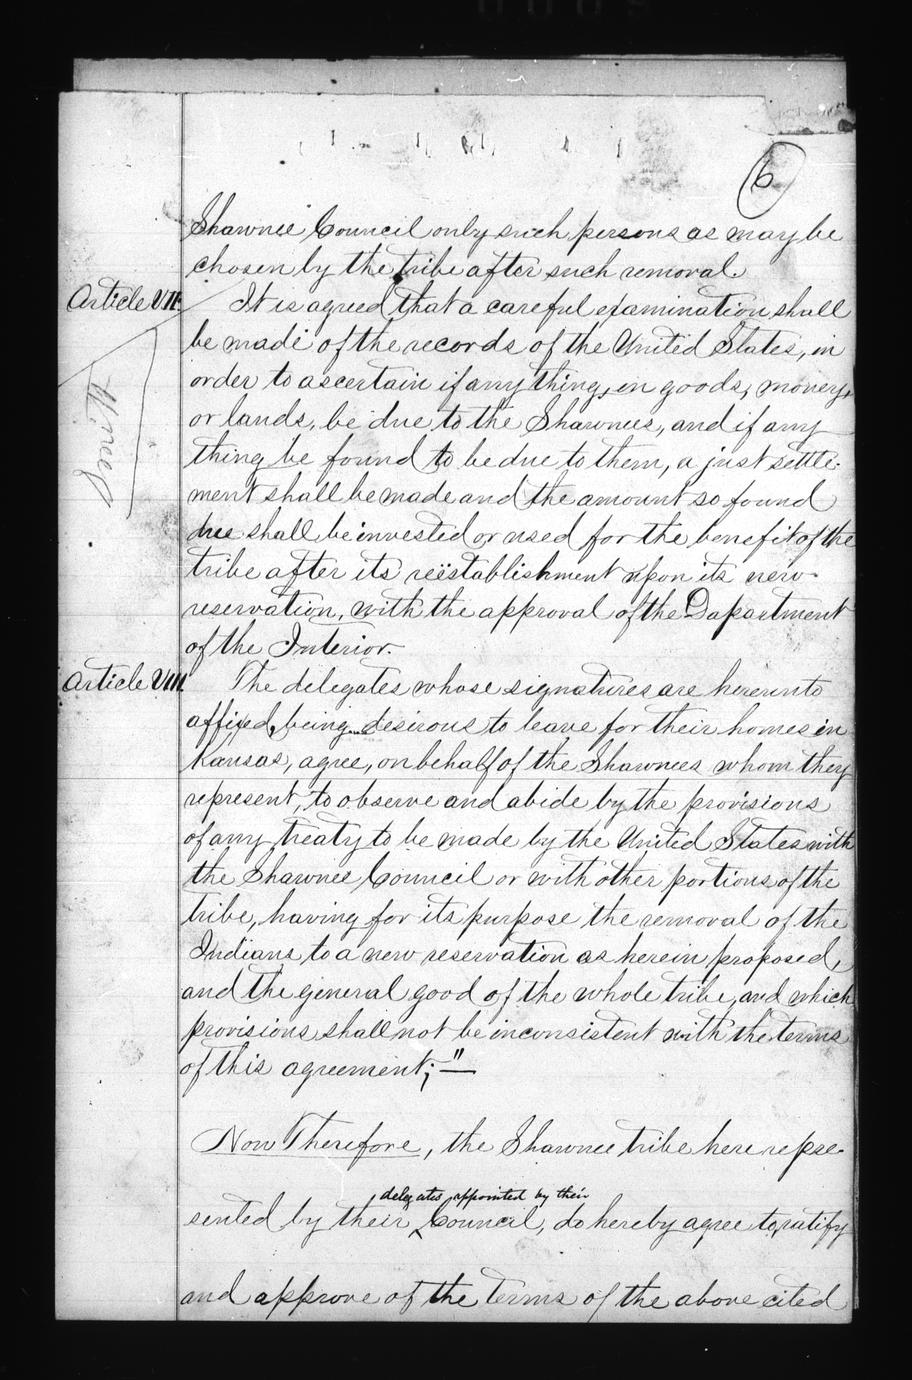 6
Shawnee Council only such persons as may be
chosen by the tribe after such removal.
Article VII. It is agreed that a careful examination shall
be made of the records of the United States, in
order to ascertain if any thing, in goods, money,
or lands, be due to the Shawnees, and if any
thing be found to be due to them, a just settle-
ment shall be made and the amount so found
due shall be invested or used for the benefit of the
tribe after its reëstablishment upon its new
reservation, with the approval of the Dapartment
of the Interior.
Article VIII. The delegates whose signatures are hereunto
affixed, being desirous to leave for their homes in
Kansas, agree, on behalf of the Shawnees whom they
represent, to observe and abide by the provisions
of any treaty to be made by the United States with
the Shawnee Council or with other portions of the
tribe, having for its purpose the removal of the
Indians to a new reservation as herein proposed,
and the general good of the whole tribe, and which
provisions shall not be inconsistent with the terms
of this agreement;"
Now Therefore, the Shawnee tribe here repre-
delegates appointed by their
sented by their Council, do hereby agree to, ratify
and approve of the terms of the above cited